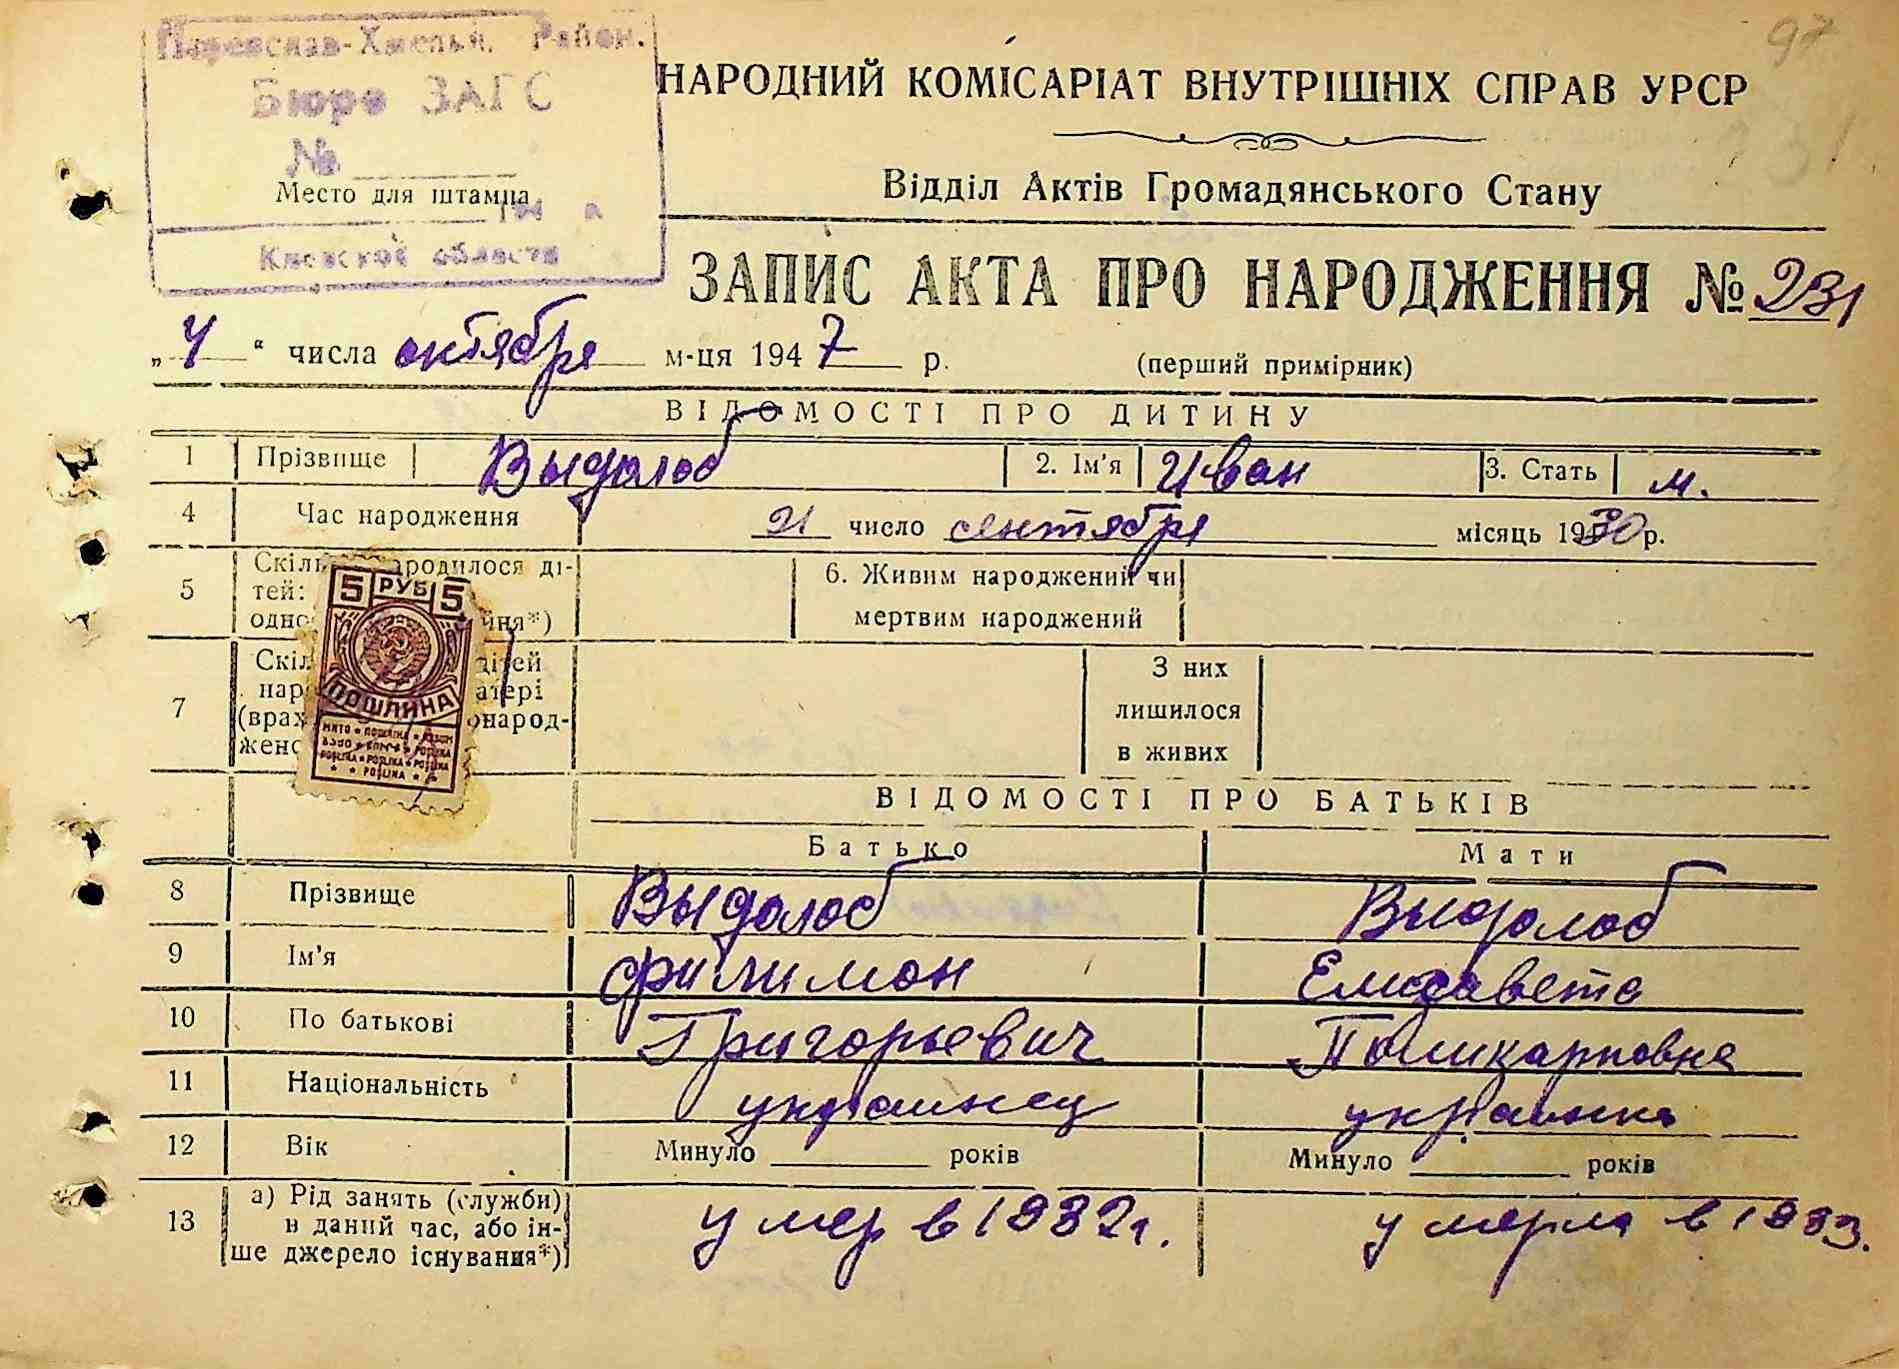 97
Переяслав-Хмельн. Район.
Бюро ЗАГС
№
Место для штампа
194 г.
Киевской области
НАРОДНИЙ КОМІСАРІАТ ВНУТРІШНІХ СПРАВ УРСР
Відділ Актів Громадянського Стану
ЗАПИС АКТА ПРО НАРОДЖЕННЯ № 231
„ 4 “ числа октября м-ця 1947 р. (перший примірник)
ВІДОМОСТІ ПРО ДИТИНУ
1 Прізвище Выдолоб 2. Ім'я Иван 3. Стать м.
4 Час народження 21 число сентября місяць 1930 р.
5 народилося ді-
тей:
6. Живим народжений чи
мертвим народжений
7 дітей
народ-
З них
лишилося
в живих
5 РУБ 5
ПОШЛИНА
ВІДОМОСТІ ПРО БАТЬКІВ
Батько Мати
8 Прізвище Выдолоб Выдолоб
9 Ім'я Филимон Елизавета
10 По батькові Григорьевич Поликарповна
11 Національність украинец украинка
12 Вік Минуло ___ років Минуло ___ років
13 а) Рід занять (служби)
в даний час, або ін-
ше джерело існування*)
умер в 1932 г. умерла в 1933.